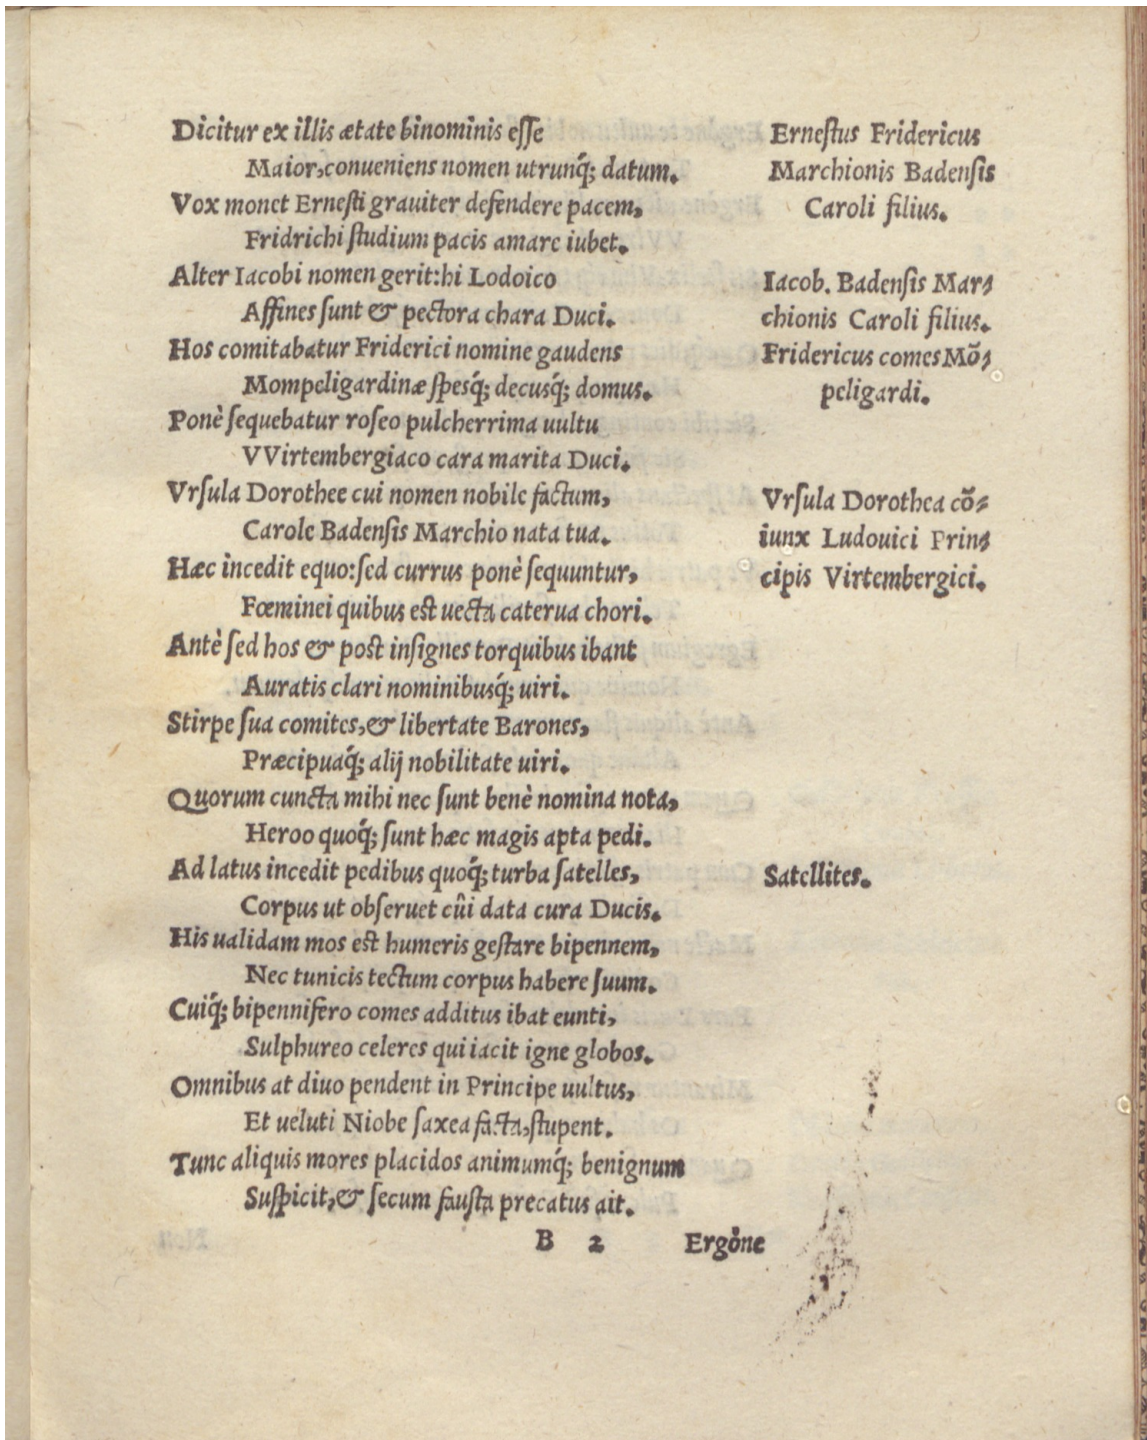 Dicitur ex illis ætate binominis eſſe
Maior,conveniens nomen utrunq́; datum.
Vox monet Erneſti grauiter defendere pacem,
Fridrichi ſtudium pacis amare iubet.
Alter Iacobi nomen gerit:hi Lodoico
Affines ſunt & pectora chara Duci.
Hos comitabatur Friderici nomine gaudens
Mompeligardinæ ſpesq́; decusq́; domus.
Ponè ſequebatur roſeo pulcherrima uultu
VVirtembergiaco cara marita Duci.
Vrſula Dorothee cui nomen nobile factum,
Carole Badenſis Marchio nata tua.
Hæc incedit equo:ſed currus ponè ſequuntur,
Fœminei quibus eſt uecta caterua chori.
Antè ſed hos & poſt inſignes torquibus ibant
Auratis clari nominibusq́; uiri.
Stirpe ſua comites,& libertate Barones,
Præcipuaq́; alij nobilitate uiri.
Quorum cuncta mihi nec ſunt benè nomina nota,
Heroo quoq́; ſunt hæc magis apta pedi.
Ad latus incedit pedibus quoq́; turba ſatelles,
Corpus ut obſeruet cûi data cura Ducis.
His ualidam mos eſt humeris geſtare bipennem,
Nec tunicis tectum corpus habere ſuum.
Cuiq́; bipennifero comes additus ibat eunti,
Sulphureo celeres qui iacit igne globos.
Omnibus at diuo pendent in Principe uultus,
Et ueluti Niobe ſaxea facta,ſtupent.
Tunc aliquis mores placidos animumq́; benignum
Suſpicit,& ſecum fauſta precatus ait.
B 2 Ergòne
Erneſtus Fridericus
Marchionis Badenſis
Caroli filius.
Iacob. Badenſis Mar⸗
chionis Caroli filius.
Fridericus comes Mõ⸗
peligardi.
Vrſula Dorothea cõ⸗
iunx Ludouici Prin⸗
cipis Virtembergici.
Satellites.